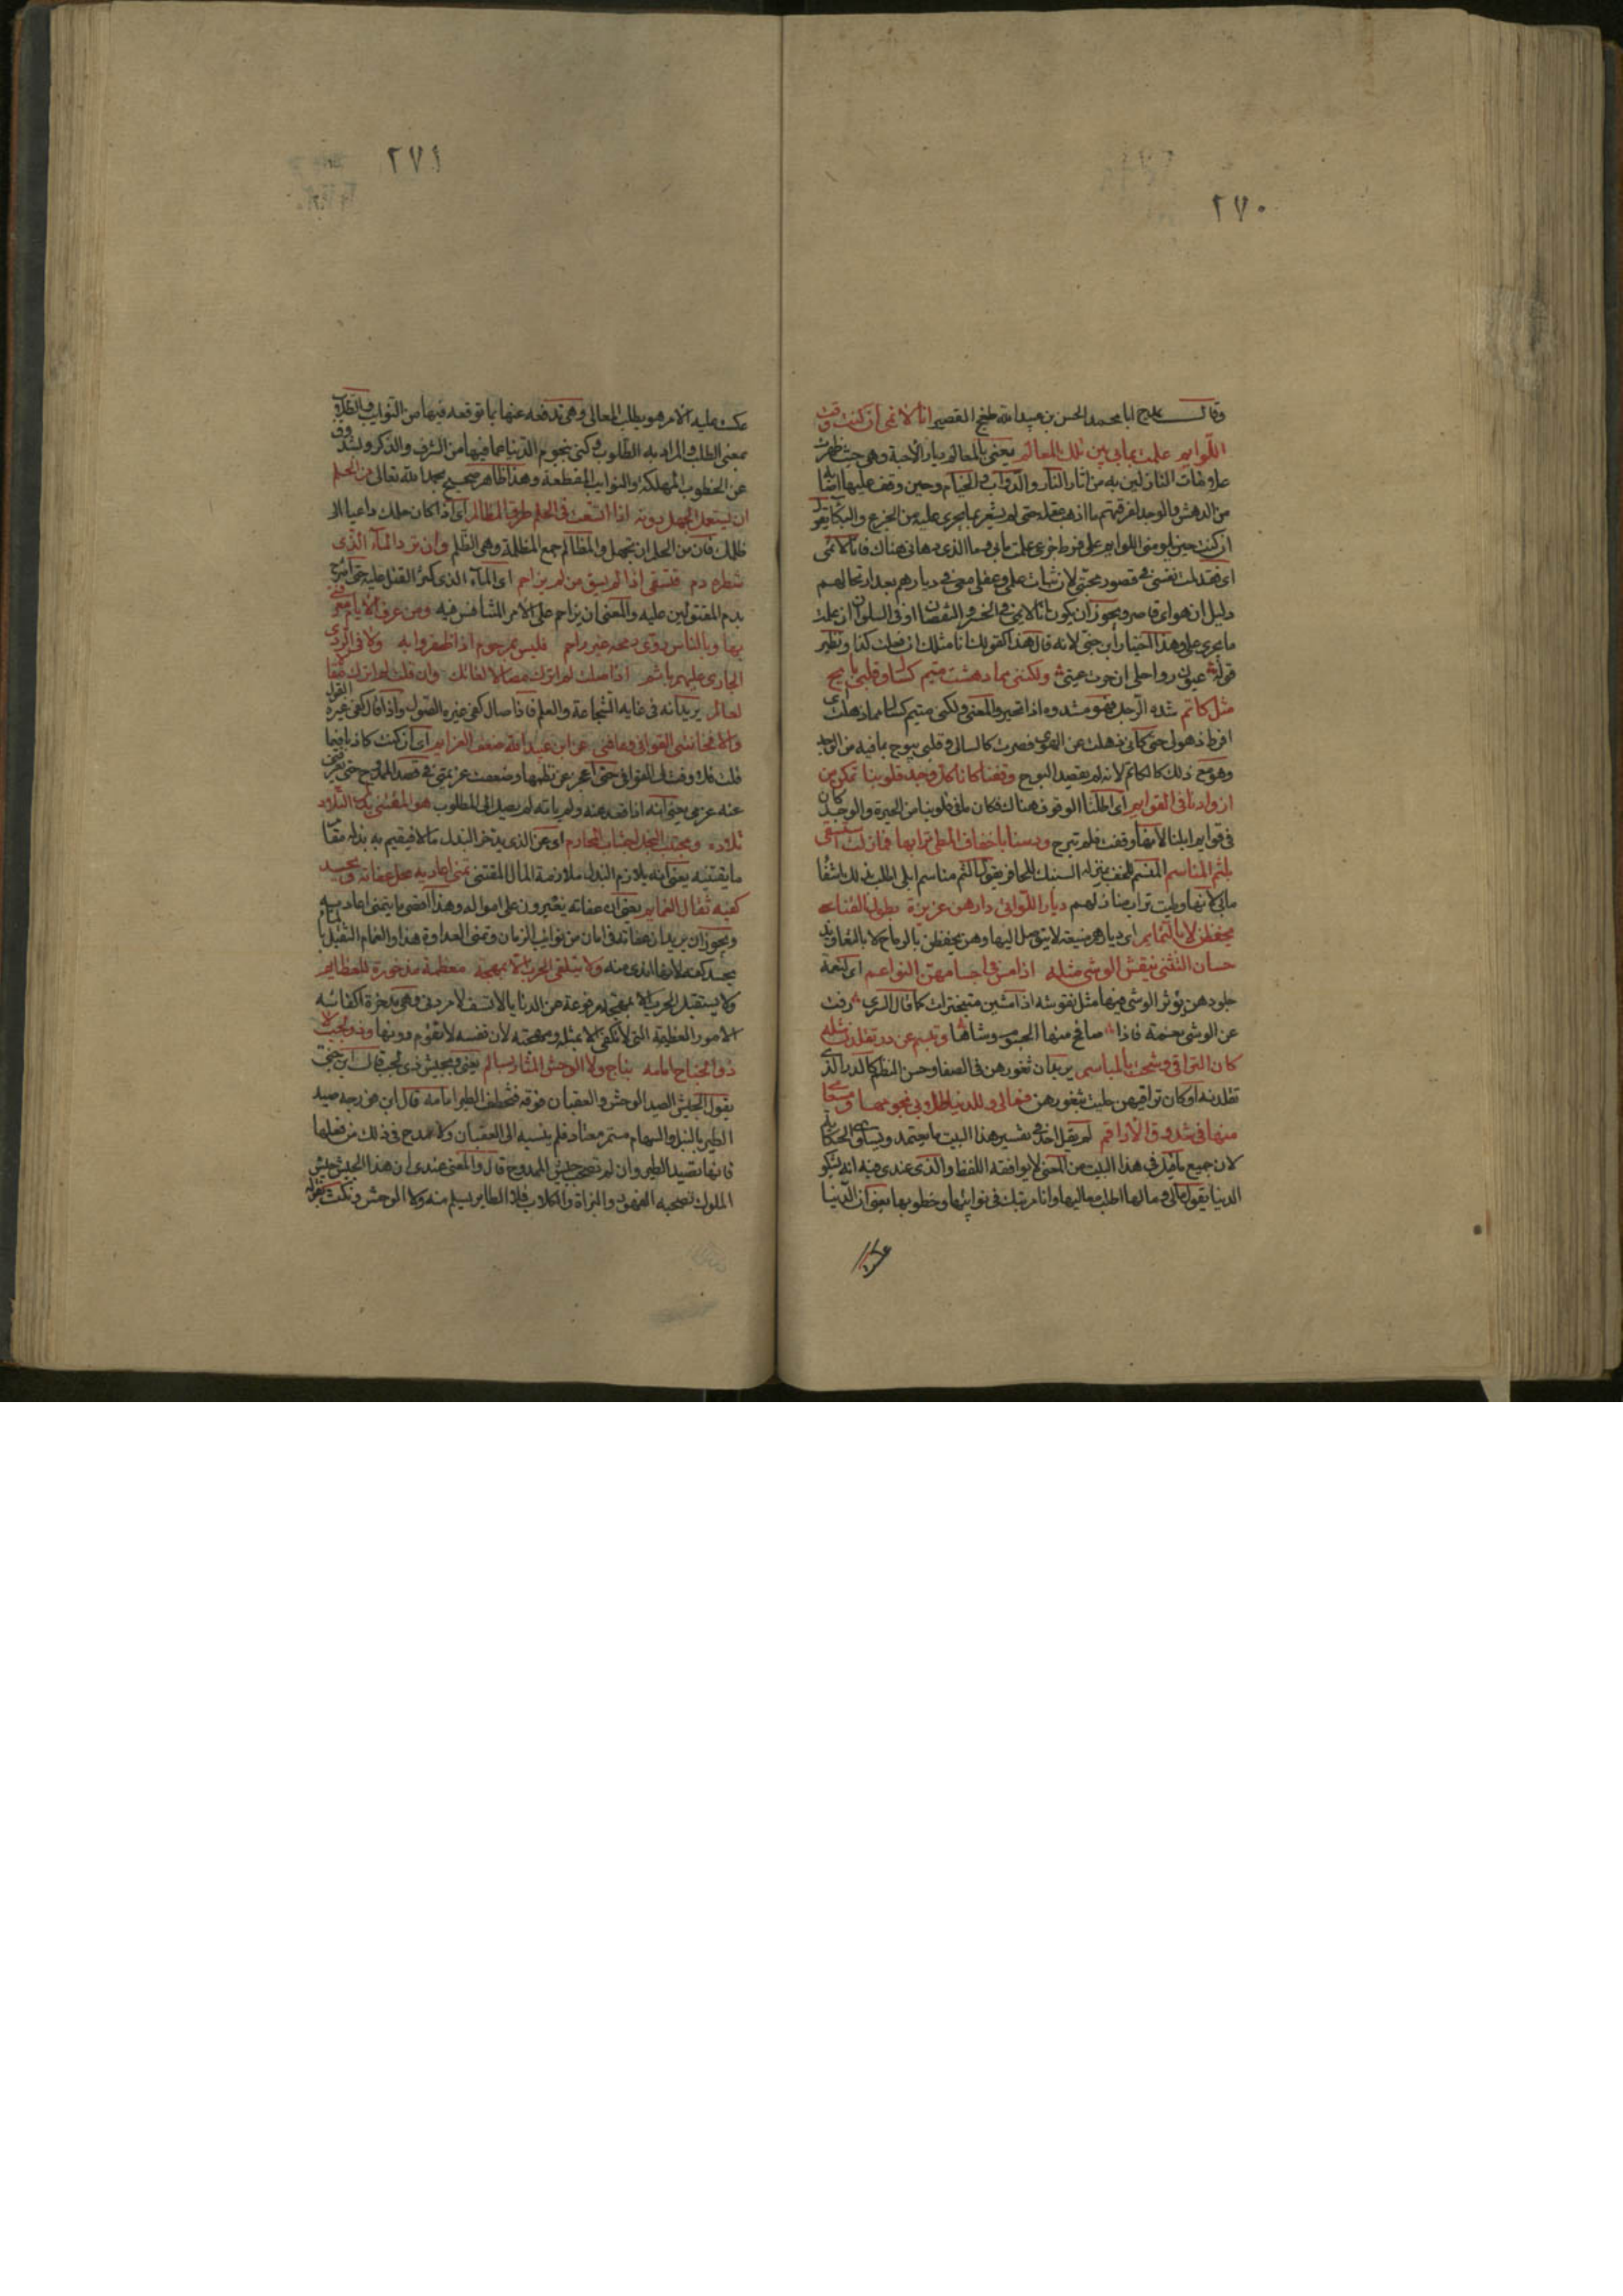 ٢٧٠
وقال يمدح ابا محمد الحسن بن عبيد الله طغج القصير انا لائمي ان كنت وقت
اللوايم علمت بما بي بين تلك المعالم يعني بالمعالم ديار الاحبة وهي حيث ظهرت
علامات النازلين به من اثار النار والدواب والخيام وحين وقف عليها
من الدهش والوجد لفرقتهم ما اذهب عقله حتى لم يشعر بما جرى عليه من الجزع والبكا يقول
ان كنت حين يلومني اللوايم على فرط جزعي علمت ما بي وما الذي دهاني هناك فانا لائمي
اي فقد لمت نفسي في قصور محبتي لان ثبات علمي وعقلي معي في ديارهم بعد ارتحالهم
دليل ان هواي قاصر ويجوز ان يكون انا لائمي في الخسر والنقصان او في السلو ان علمت
ما جرى علي وهذا اختيار ابن جني لانه قال هذا كقولك انا مثلك ان فعلت كذا ونظير
قوله عيون رواحلي ان حرت عيني ولكنني مما دهشت متيم كسال وقلبي بايح
مثل كاتم شده الرجل فهو مشدوه اذا تحير والمعنى ولكني متيم كسال مما ذهلت اي
افرط ذهولي حتى كاني ذهلت عن الهوى فصرت كالسالي وقلبي يبوح بما فيه من الوجد
وهو مع ذلك كالكاتم لانه لم يقصد البوح وقفنا كانا كل وجد قلوبنا تمكن من
اذوادنا في القوايم اي اطلنا الوقوف هناك فكان ما في قلوبنا من الحيرة والوجد كان
في قوايم ابلنا لانها وقفت فلم تبرح ودسنا باخفاف المطي ترابها فما زلت استشفي
بلثم المناسم المنسم للخف بمنزلة السنبك للحافر يقول الثم مناسم ابلي اطلب بذلك شفا
ما بي لانها وطيت تراب منازلهم ديار اللواتي دارهن عزيزة بطول القنا
يحفظن لا بالتمايم اي ديارهم منيعة لا يتوصل اليها وهن يحفظن بالرماح لا بالتعاويذ
حسان التثني ينقش الوشي مثله اذا مسن في اجسامهن النواعم اي لنعمة
جلودهن يؤثر الوشي فيها مثل نقوشه اذا مشين متبخترات كما قال السري رقت
عن الوشي نعمة فاذا صافح منها الجسوم وشاها ويبسم عن در تقلدن مثله
كان التراقي وشحت بالمباسم يريد ان ثغورهن في الصفا وحسن النظم كالدر الذي
تقلدنه او كان تراقيهن حليت بثغورهن فما لي وللدنيا طلابي نجومها ومسعاي
منها في شدوق الاراقم لم يقل احد في تفسير هذا البيت ما يعتمد ويساوي الحكاية
لان جميع ما قيل في هذا البيت من المعنى لا يوافقه اللفظ والذي عندي فيه انه يشكو
الدنيا يقول ما لي وما لها اطلب معاليها وانا مرتبك في نوايبها وخطوبها يعني ان الدنيا
٢٧١
عكست عليه الامر هو يطلب المعالي وهي تدفعه عنها بما توقعه فيها من النوايب والطلاب
بمعنى الطلب والمراد به المطلوب وكنى بنجوم الدنيا عما فيها من الشرف والذكر وبشدوق
عن الخطوب المهلكة والنوايب المفظعة وهذا ظاهر صحيح بحمد الله تعالى من الحلم
ان يستعمل الجهل دونه اذا اتسعت في الحلم طرق المظالم اي اذا كان حلمك داعيا الا
ظلمك فان من الحلم ان تجهل والمظالم جمع المظلمة وهي الظلم وان ترد الماء الذي
شطره دم فتسقى اذا لم يسق من لم يزاحم اي الماء الذي كثر القتل عليه حتى امتزج
بدم المقتولين عليه والمعنى ان يزاحم على الامر المتنافس فيه ومن عرف الايام معرفتي
بها وبالناس روى رمحه غير راحم فليس بمرحوم اذا ظفروا به ولا في الردى
الجاري عليهم باثم اذا صلت لم اترك مصالا لفاتك وان قلت لم اترك مقالا
لعالم يريد انه في غاية الشجاعة والعلم فاذا صال كفى غيره الصول واذا قال كفى غيره القول
والا فخانتني القوافي وعاقني عن ابن عبيد الله ضعف العزايم اي ان كنت كاذبا فيما
قلت فلا وفت لي القوافي حتى اعجز عن نظمها وضعفت عزيمتي في قصد الممدوح حتى يعوقني
عنه عزمي يعني انه اذا قعد عنه ولم ياته لم يصل الى المطلوب هو المقتني بذل التلاد
تلاده ومجتنب البخل اجتناب المحارم اي عن الذي يدخر البذل مالا فيقيم به بذله مقام
ما يقتنيه يعني انه يلازم البذل ملازمة المال المقتنى تمنى اعاديه محل عفاته وتحسد
كفيه ثقال الغمايم يعني ان عفاته يغيرون على امواله وهذا اقصى ما يتمنى اعاديه
ويجوز ان يريد ان عفاته في امان من نوايب الزمان وتمنى العداوة هذا والغمام الثقيل
يحسد كفه لانها اندى منه ولا يتلقى الحرب الا بمهجة معظمة مذخورة للعظايم
ولا يستقبل الحرب الا بمهجة مرفوعة عن الدنايا لا تسف لامر دني وهي مدخرة لكفاية
الامور العظيمة التي لا تكفى الا بمثله ومهجته لان نفسه لا تقوم دونها وذي لجب لا
ذو الجناح امامه بناج ولا الوحش المثار بسالم يعني وبجيش ذي لجب قال ابن جني
يقول الجيش يصيد الوحش والعقبان فوقه فتخطف الطير امامه قال ابن فورجه صيد
الطير بالنبل والسهام مستمر معتاد فلم ينسبه الى العقبان ولا مدح في ذلك من فعلها
فانها تصيد الطير وان لم تصحب جيش الممدوح قال والمعنى عندي ان هذا الجيش جيش
الملوك تصحبه الفهود والبزاة والكلاب فلا الطاير يسلم منه ولا الوحش